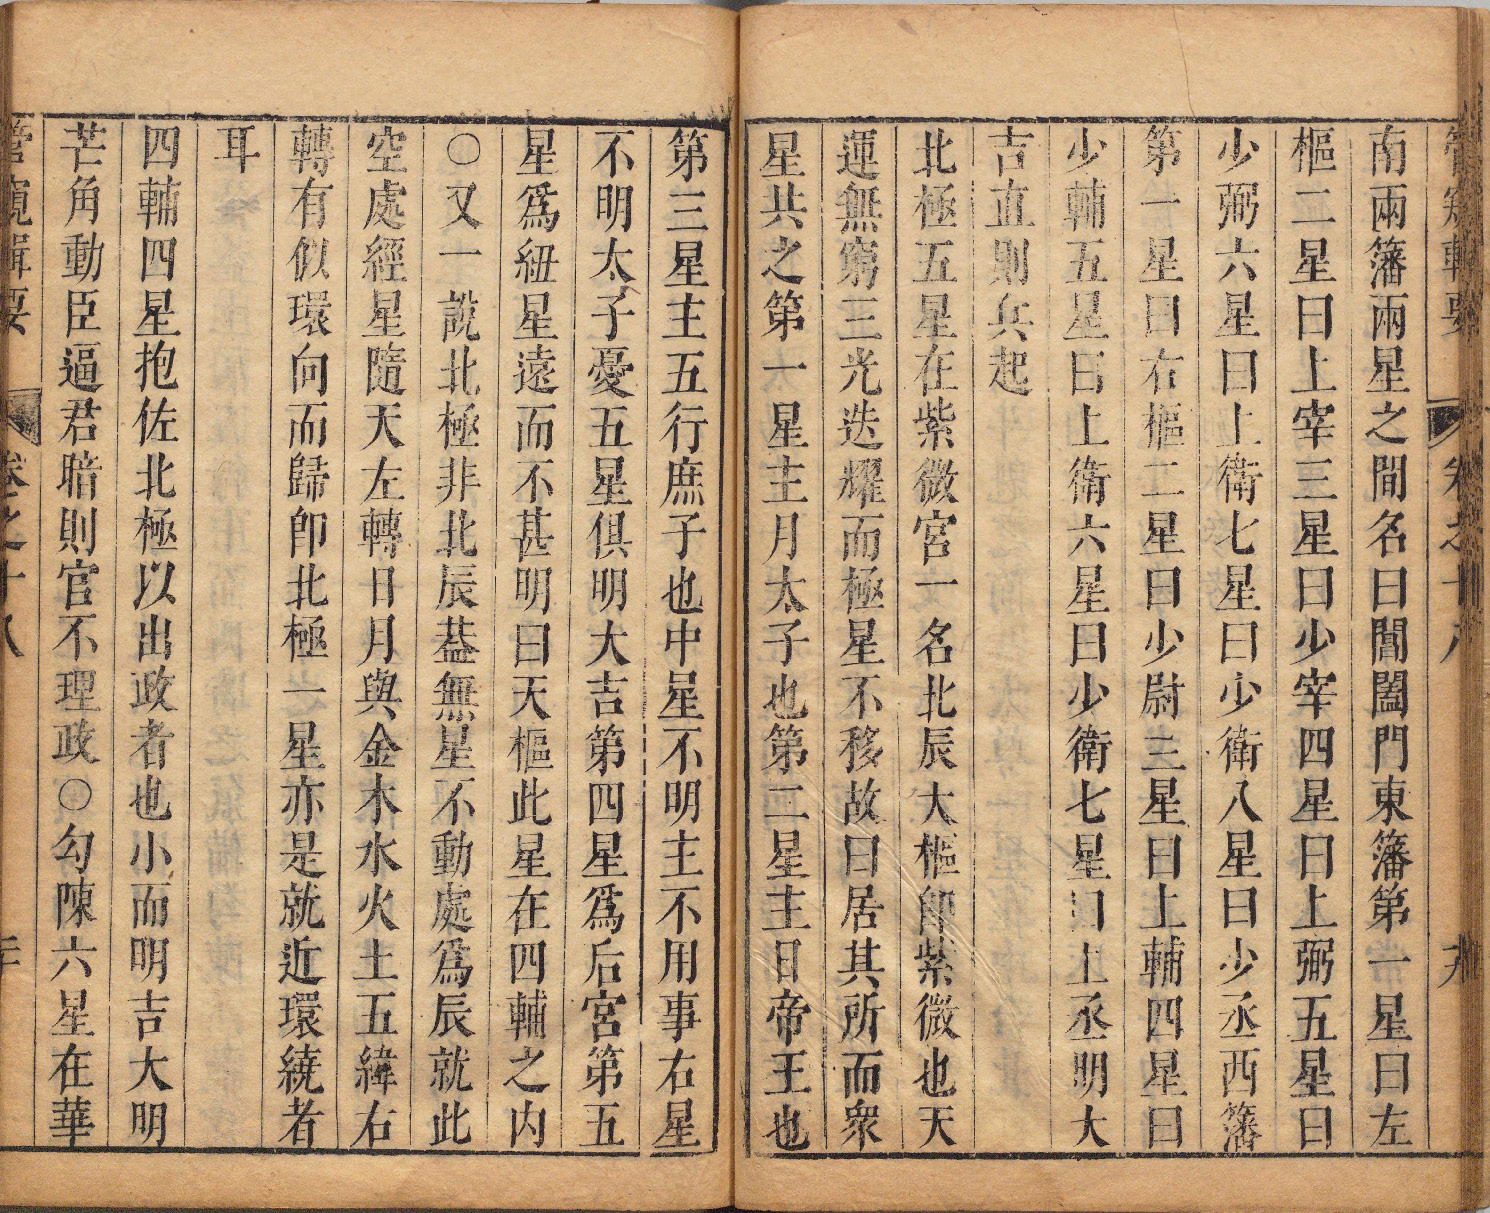 管窺輯要 卷之十八
南兩藩兩星之間名曰閶闔門東藩第一星曰左
樞二星曰上宰三星曰少宰四星曰上弼五星曰
少弼六星曰上衛七星曰少衛八星曰少丞西藩
第一星曰右樞二星曰少尉三星曰上輔四星曰
少輔五星曰上衛六星曰少衛七星曰上丞明大
吉直則兵起
北極五星在紫微宮一名北辰大樞卽紫微也天
運無窮三光迭耀而極星不移故曰居其所而衆
星共之第一星主月太子也第二星主日帝王也
第三星主五行庶子也中星不明主不用事右星
不明太子憂五星俱明大吉第四星爲后宮第五
星爲紐星星遠而不甚明曰天樞此星在四輔之内
〇又一說北極非北辰葢無星不動處爲辰就此
空處經星隨天左轉日月與金木水火土五緯右
轉有似環向而歸卽北極一星亦是就近環繞者
耳
四輔四星抱佐北極以出政者也小而明吉大明
芒角動臣逼君暗則官不理政〇勾陳六星在華
管窺輯要 卷之十八